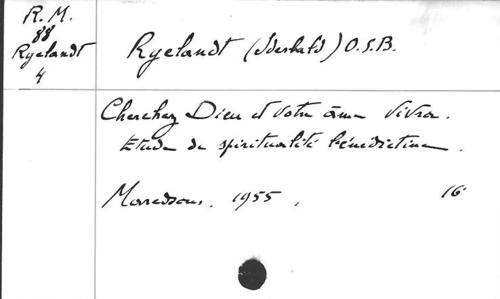 R. M.
88
Ryelandt
4
Ryelandt (Idesbald) O.S.B.
Cherchez Dieu et votre âme vivra.
Etude de spiritualité bénédictine.
Maredsous, 1955, 16°